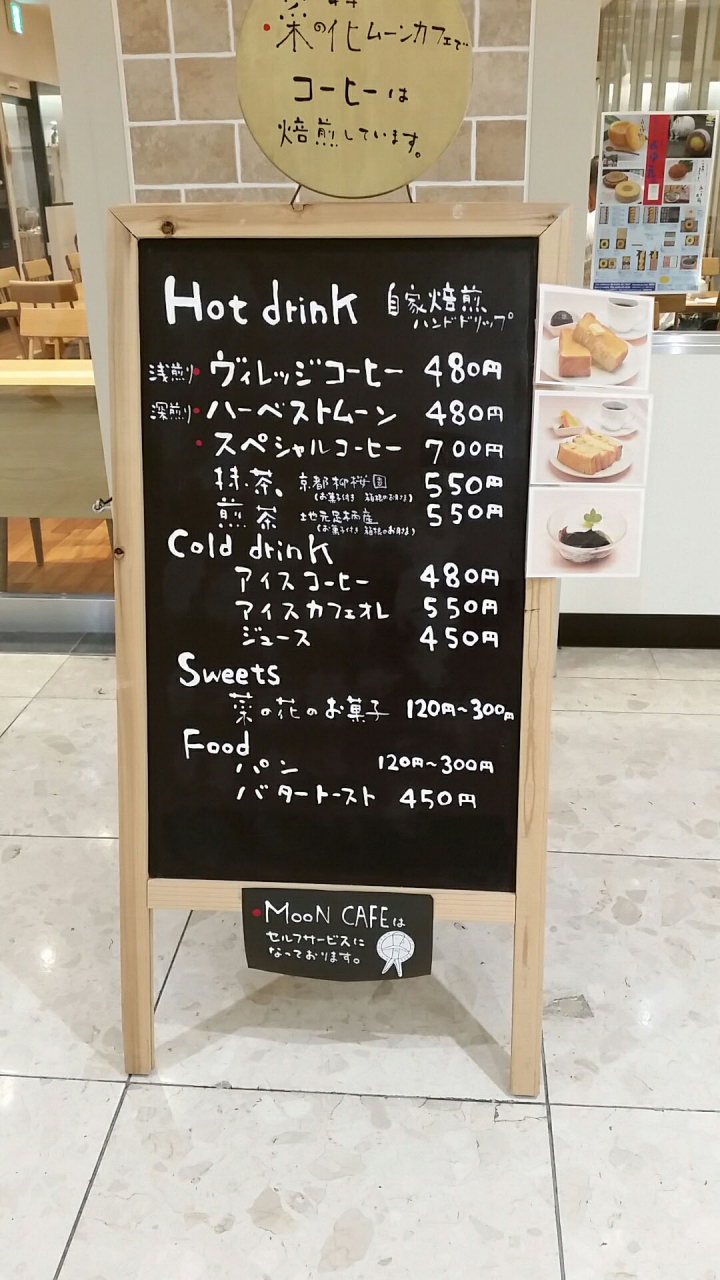 ・菜の花ムーンカフェで
コーヒーは
焙煎しています。
Hot drink 自家焙煎
ハンドドリップ
浅煎り・ヴィレッジコーヒー 480円
深煎り・ハーベストムーン 480円
・スペシャルコーヒー 700円
抹茶。京都柳桜園 550円
(お菓子付き 箱根のお月さま)
煎茶 地元足柄産 550円
(お菓子付き 箱根のお月さま)
Cold drink
アイスコーヒー 480円
アイスカフェオレ 550円
ジュース 450円
Sweets
菜の花のお菓子 120円~300円
Food
パン 120円~300円
バタートースト 450円
・MooN CAFEは
セルフサービスに
なっております。